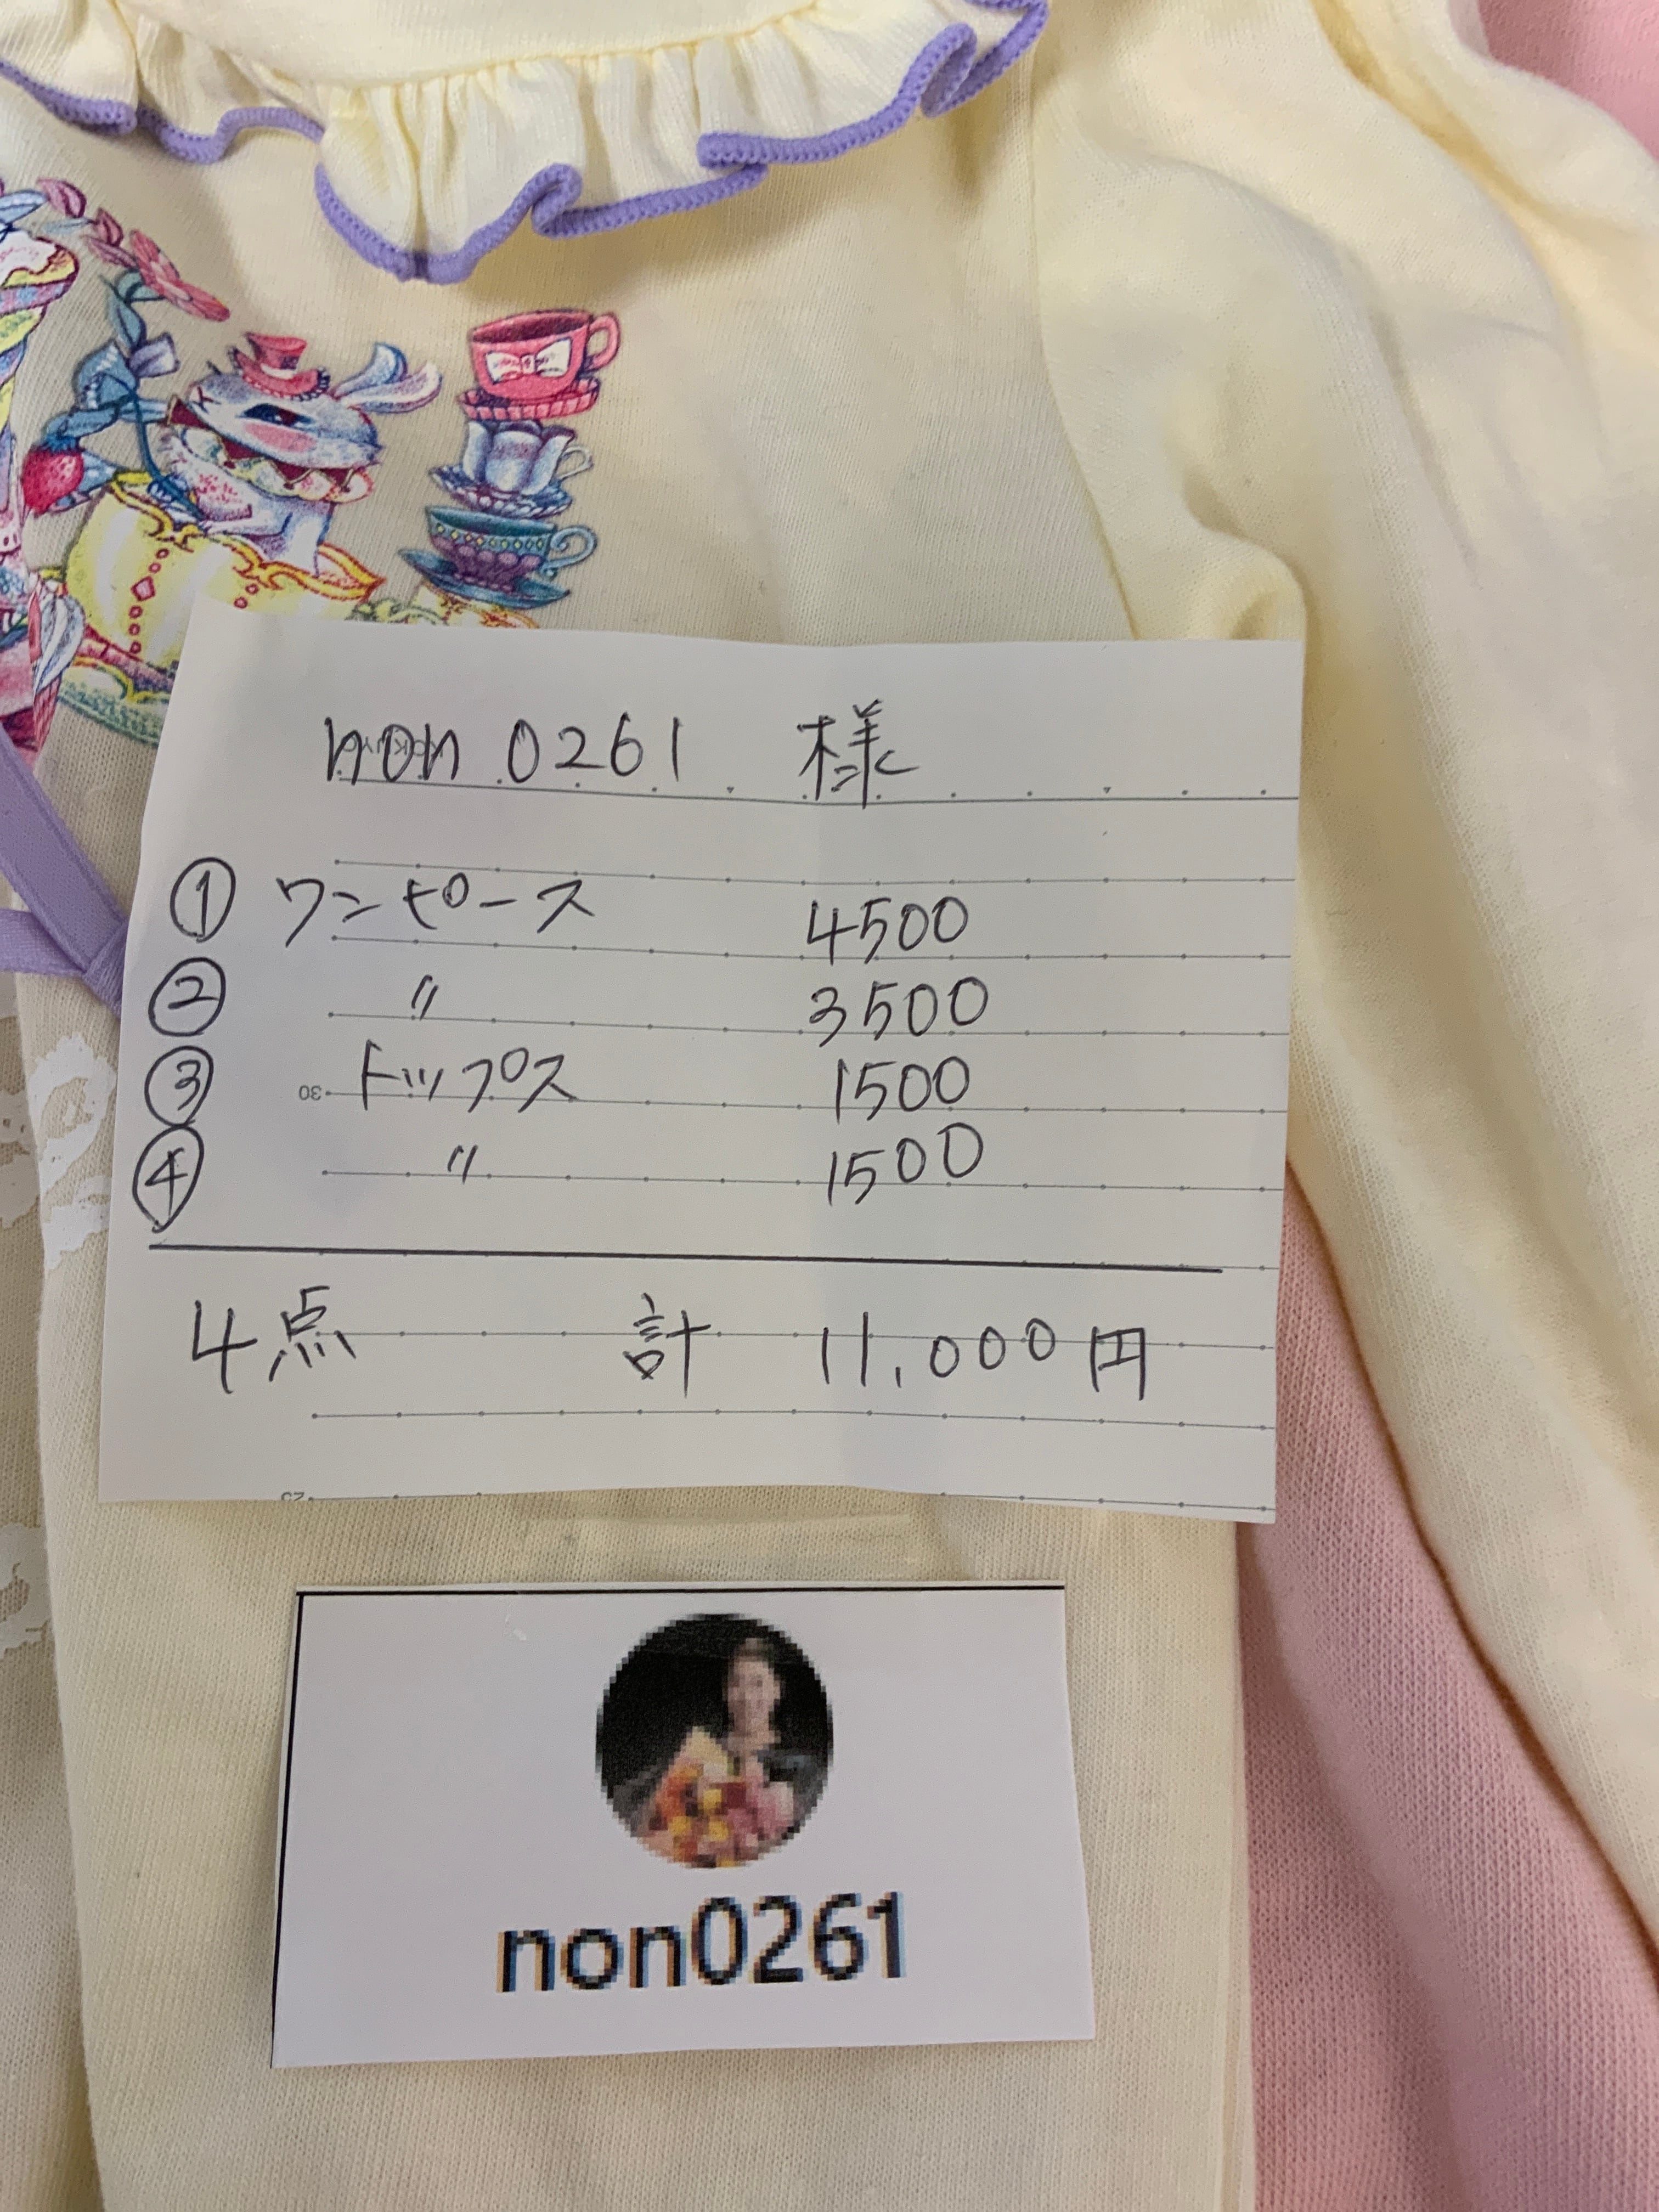 non 0261 様
① ワンピース 4500
② 〃 3500
30
③ トップス 1500
④ 〃 1500
4点 計 11,000円
25
non0261